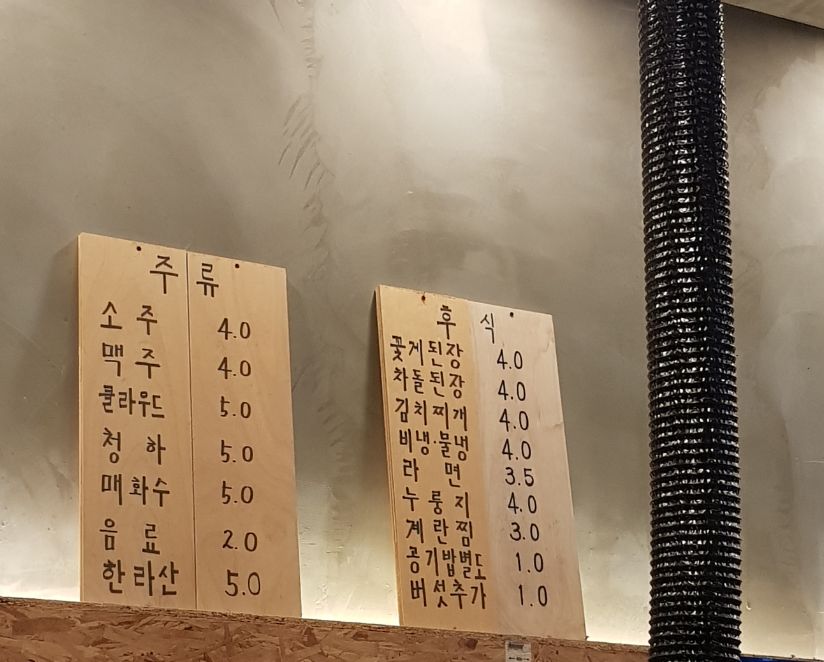 주류
소주 4.0
맥주 4.0
클라우드 5.0
청하 5.0
매화수 5.0
음료 2.0
한라산 5.0
후식
꽃게된장 4.0
차돌된장 4.0
김치찌개 4.0
비냉·물냉 4.0
라면 3.5
누룽지 4.0
계란찜 3.0
공기밥별도 1.0
버섯추가 1.0